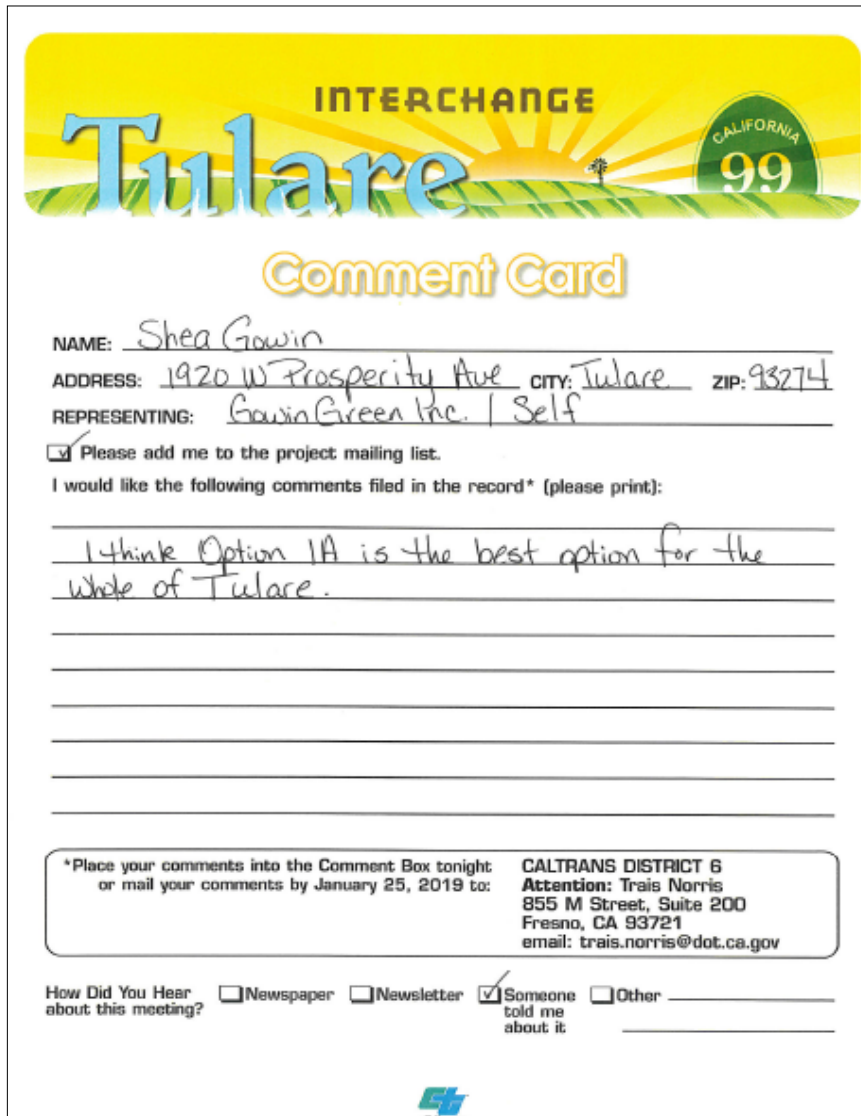 INTERCHANGE
Tulare
CALIFORNIA
99
Comment Card
NAME: Shea Gowin
ADDRESS: 1920 W Prosperity Ave CITY: Tulare ZIP: 93274
REPRESENTING: GowinGreen Inc. / Self
Please add me to the project mailing list.
I would like the following comments filed in the record* (please print):
I think Option 1A is the best option for the
whole of Tulare.
*Place your comments into the Comment Box tonight
or mail your comments by January 25, 2019 to:
CALTRANS DISTRICT 6
Attention: Trais Norris
855 M Street, Suite 200
Fresno, CA 93721
email: trais.norris@dot.ca.gov
How Did You Hear
about this meeting?
Newspaper Newsletter Someone
told me
about it
Other